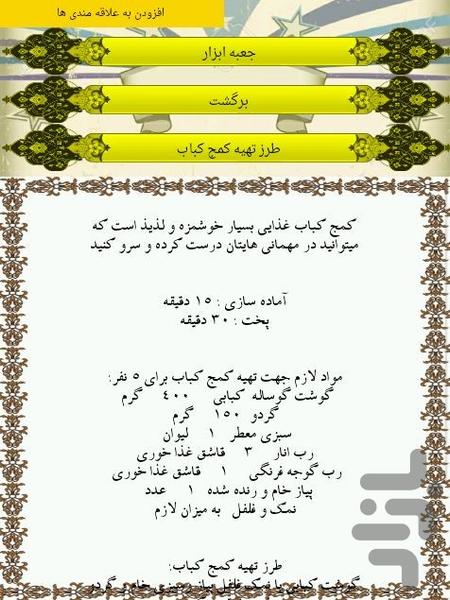 افزودن به علاقه مندی ها
جعبه ابزار
برگشت
طرز تهیه کمج کباب
کمج کباب غذایی بسیار خوشمزه و لذیذ است که
میتوانید در مهمانی هایتان درست کرده و سرو کنید
آماده سازی : ۱۵ دقیقه
پخت : ۳۰ دقیقه
مواد لازم جهت تهیه کمج کباب برای ۵ نفر:
گوشت گوساله کبابی ۴۰۰ گرم
گردو ۱۵۰ گرم
سبزی معطر ۱ لیوان
رب انار ۳ قاشق غذا خوری
رب گوجه فرنگی ۱ قاشق غذا خوری
پیاز خام و رنده شده ۱ عدد
نمک و فلفل به میزان لازم
طرز تهیه کمج کباب:
گوشت کبابی با نمک فلفل پیاز سبزی خام و گردو
بازار